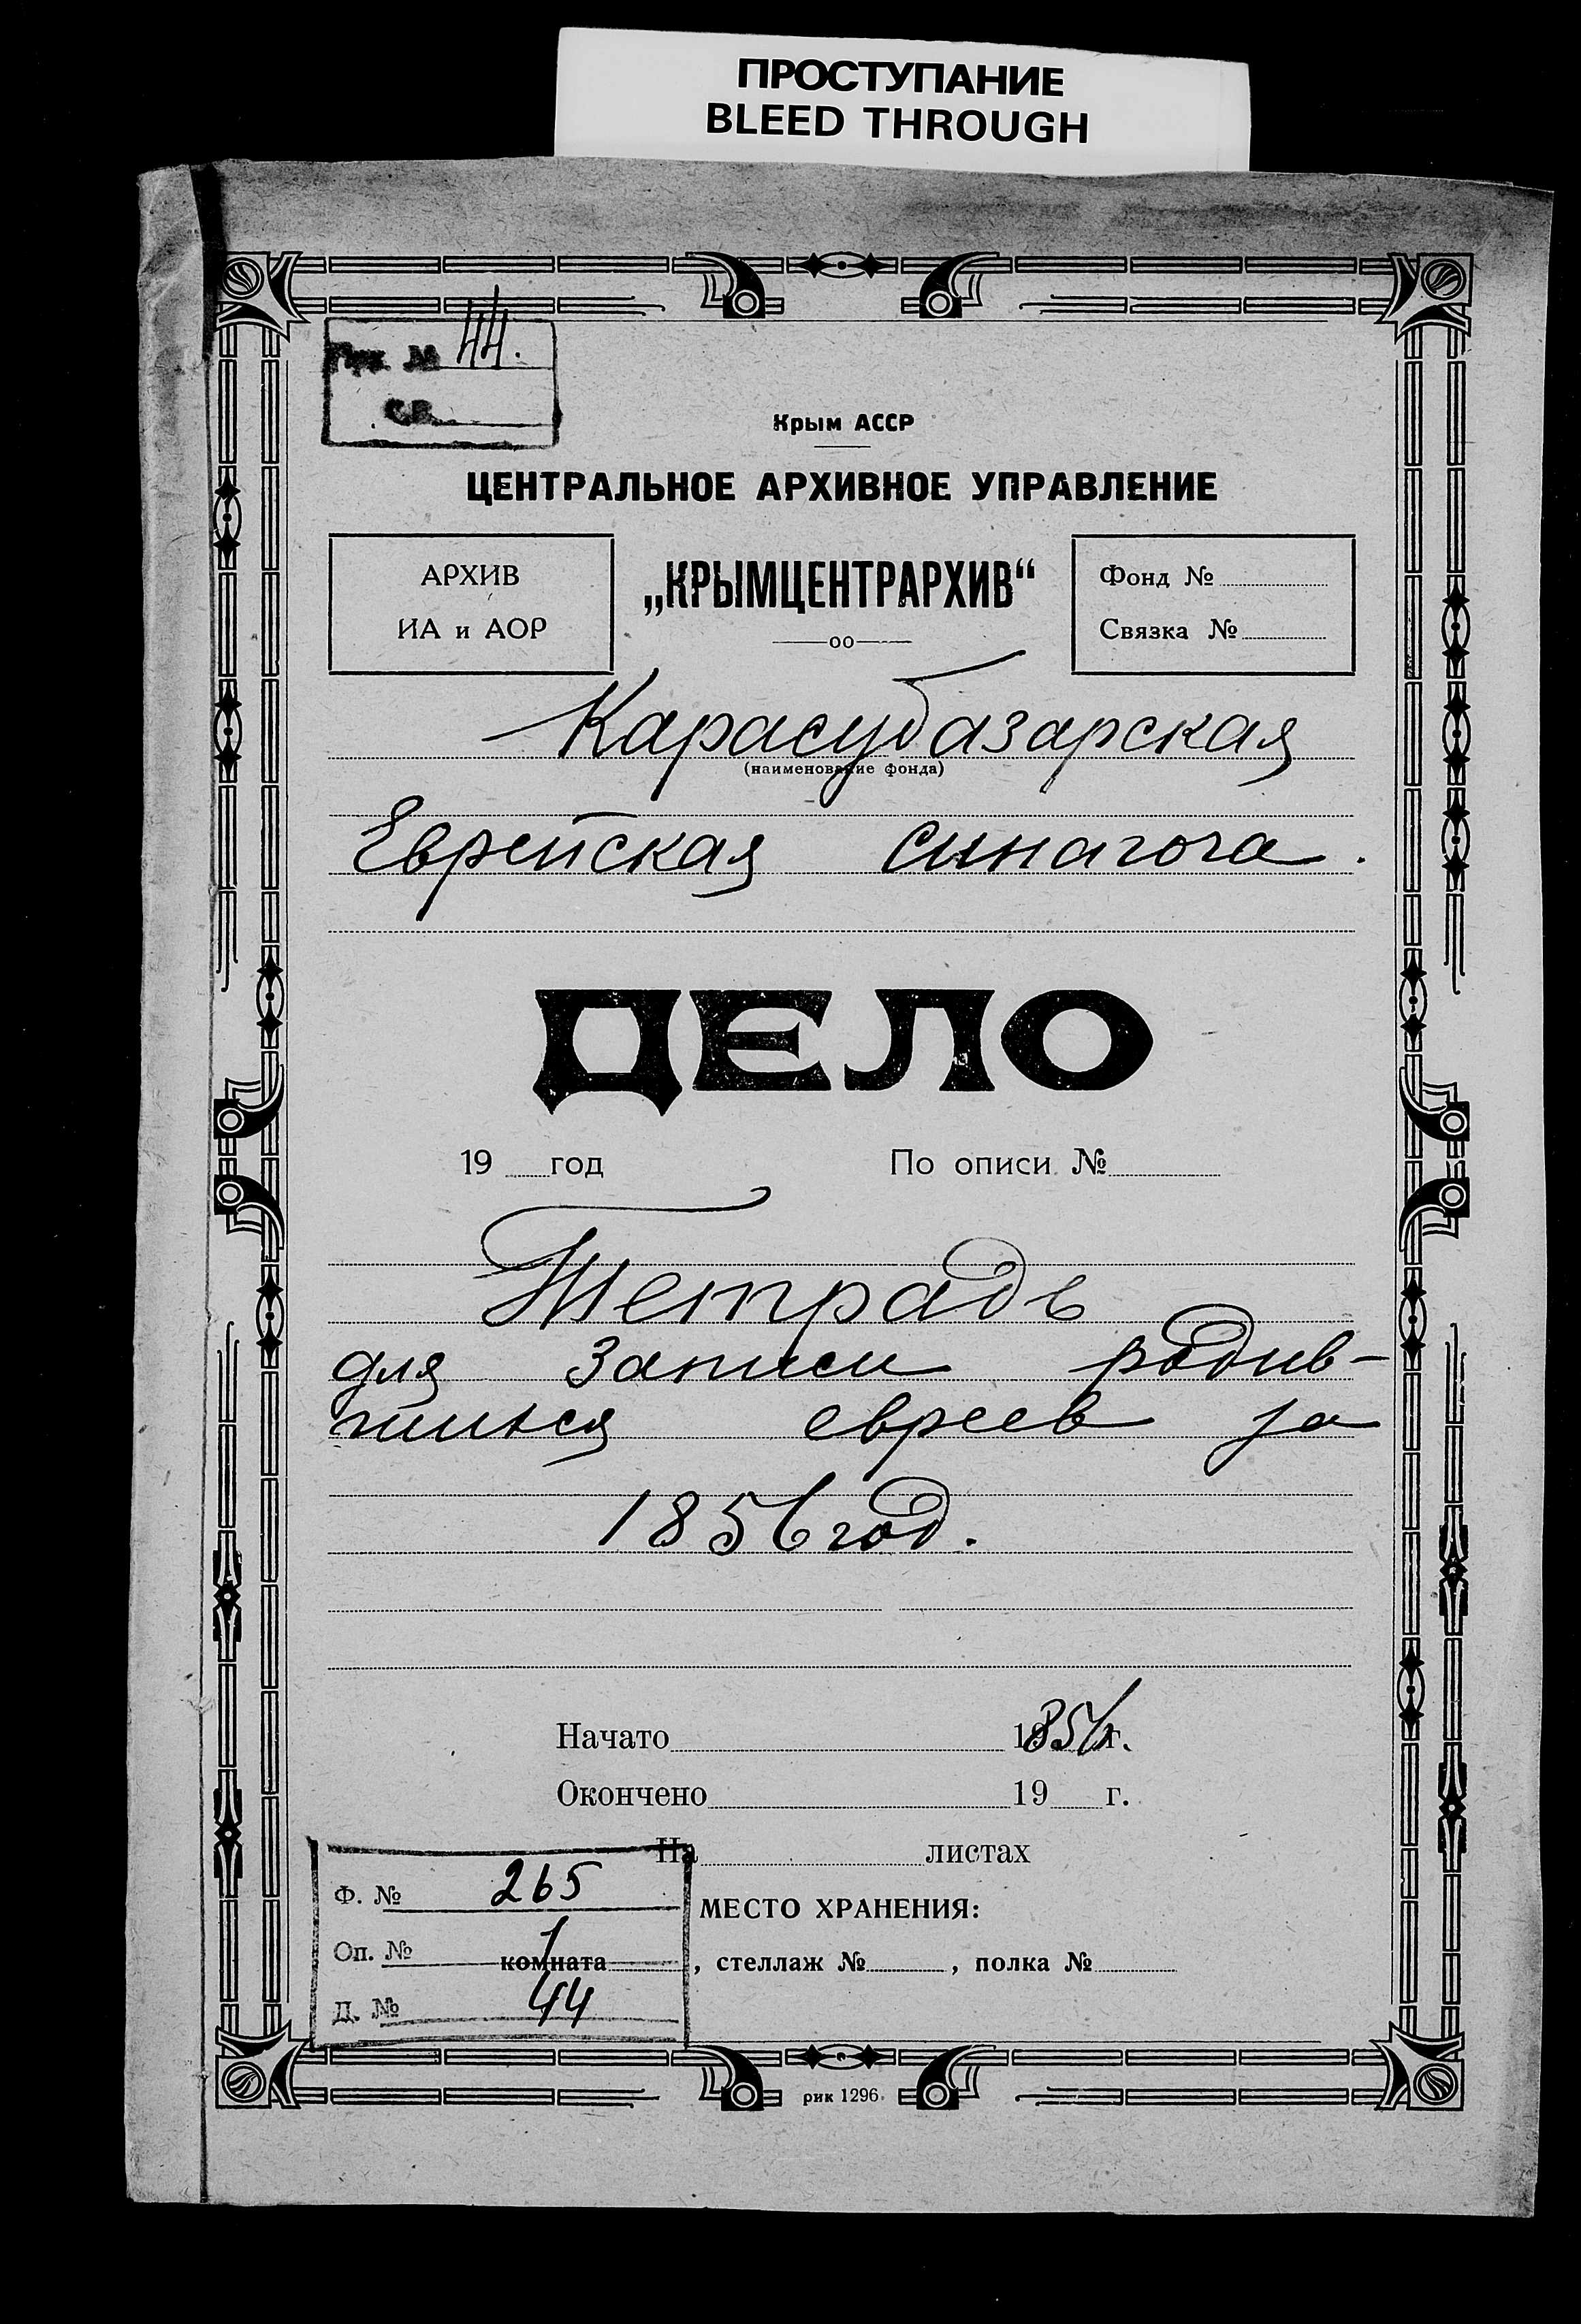 ПРОСТУПАНИЕ
BLEED THROUGH
Арх. № 44.
СВ.
Крым АССР
ЦЕНТРАЛЬНОЕ АРХИВНОЕ УПРАВЛЕНИЕ
АРХИВ
ИА и АОР
„КРЫМЦЕНТРАРХИВ“
Фонд №
Связка №
Карасубазарская
(наименование фонда)
Еврейская синагога.
ДЕЛО
19 год По описи №
Тетрадь
для записи родив-
шихся евреев за
1856 год.
Начато 1856 г.
Окончено 19 г.
На листах
Ф. № 265
МЕСТО ХРАНЕНИЯ:
Оп. № 1
комната , стеллаж № , полка №
Д. № 44
рик 1296